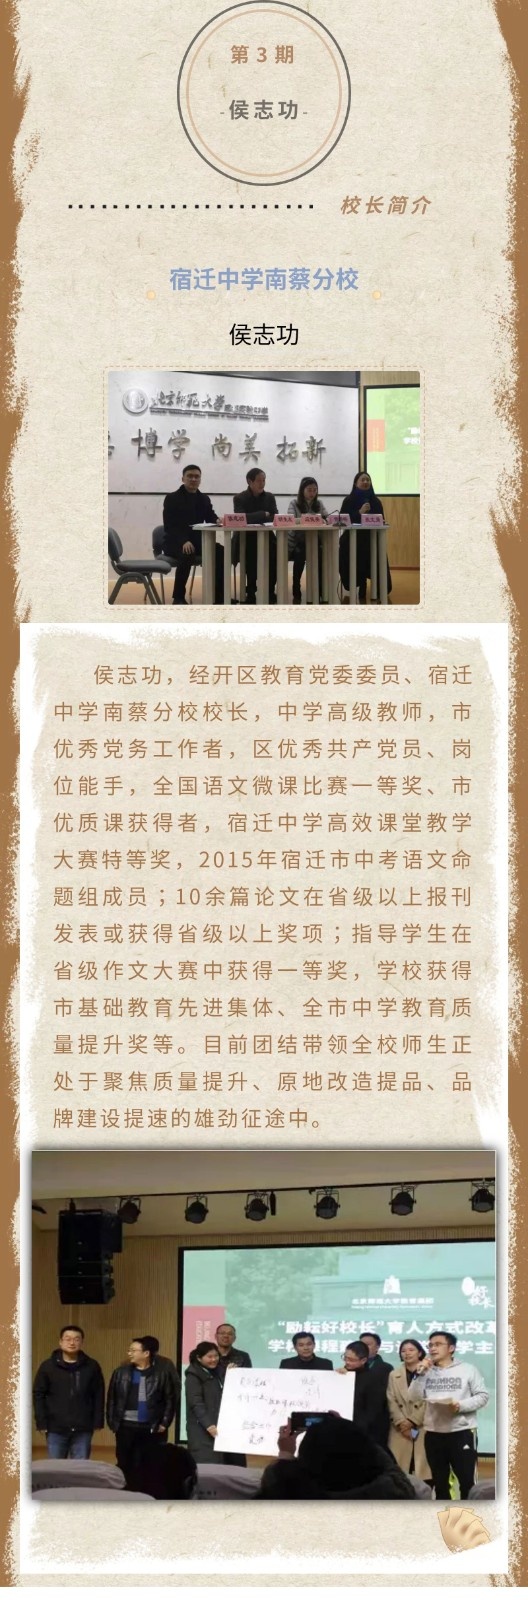 第3期
-侯志功-
校长简介
宿迁中学南蔡分校
侯志功
北京师范大学
博学 尚美 拓新
侯志功，经开区教育党委委员、宿迁
中学南蔡分校校长，中学高级教师，市
优秀党务工作者，区优秀共产党员、岗
位能手，全国语文微课比赛一等奖、市
优质课获得者，宿迁中学高效课堂教学
大赛特等奖，2015年宿迁市中考语文命
题组成员；10余篇论文在省级以上报刊
发表或获得省级以上奖项；指导学生在
省级作文大赛中获得一等奖，学校获得
市基础教育先进集体、全市中学教育质
量提升奖等。目前团结带领全校师生正
处于聚焦质量提升、原地改造提品、品
牌建设提速的雄劲征途中。
好校长
“励耘好校长”育人方式改革
学校课程